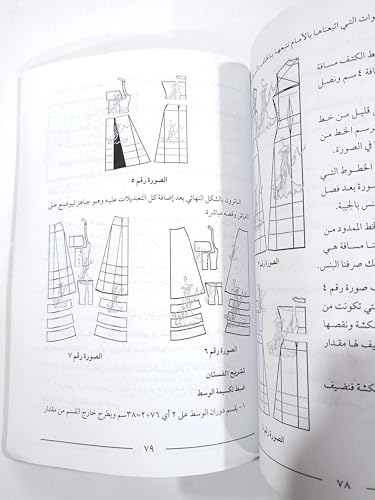 الصورة رقم ٥
الباترون بالشكل النهائي بعد إضافة كل التعديلات عليه وهو جاهز ليوضع على
القماش وقصه مباشرة.
الصورة رقم ٦
الصورة رقم ٧
تشريح الفستان
ضبط تكسيمة الوسط
١- يقسم دوران الوسط على ٢ أي ٧٦÷٢=٣٨سم ويطرح خارج القسم من مقدار
٧٩
وات التي اتبعناها بالأمام نتبعها
ط الكتف مسافة
افة ٤سم ونصل
ن قليل من خط
رسم الخط من
في الصورة.
الخطوط التي
ورة بعد فصل
نس بالجيبة.
خط الممدود من
نا مسافة هي
ك صرفنا البنس.
صورة رقم ٤
تي تكونت من
كشة ونقصها
يف لها مقدار
كشة فنضيف
٧٨